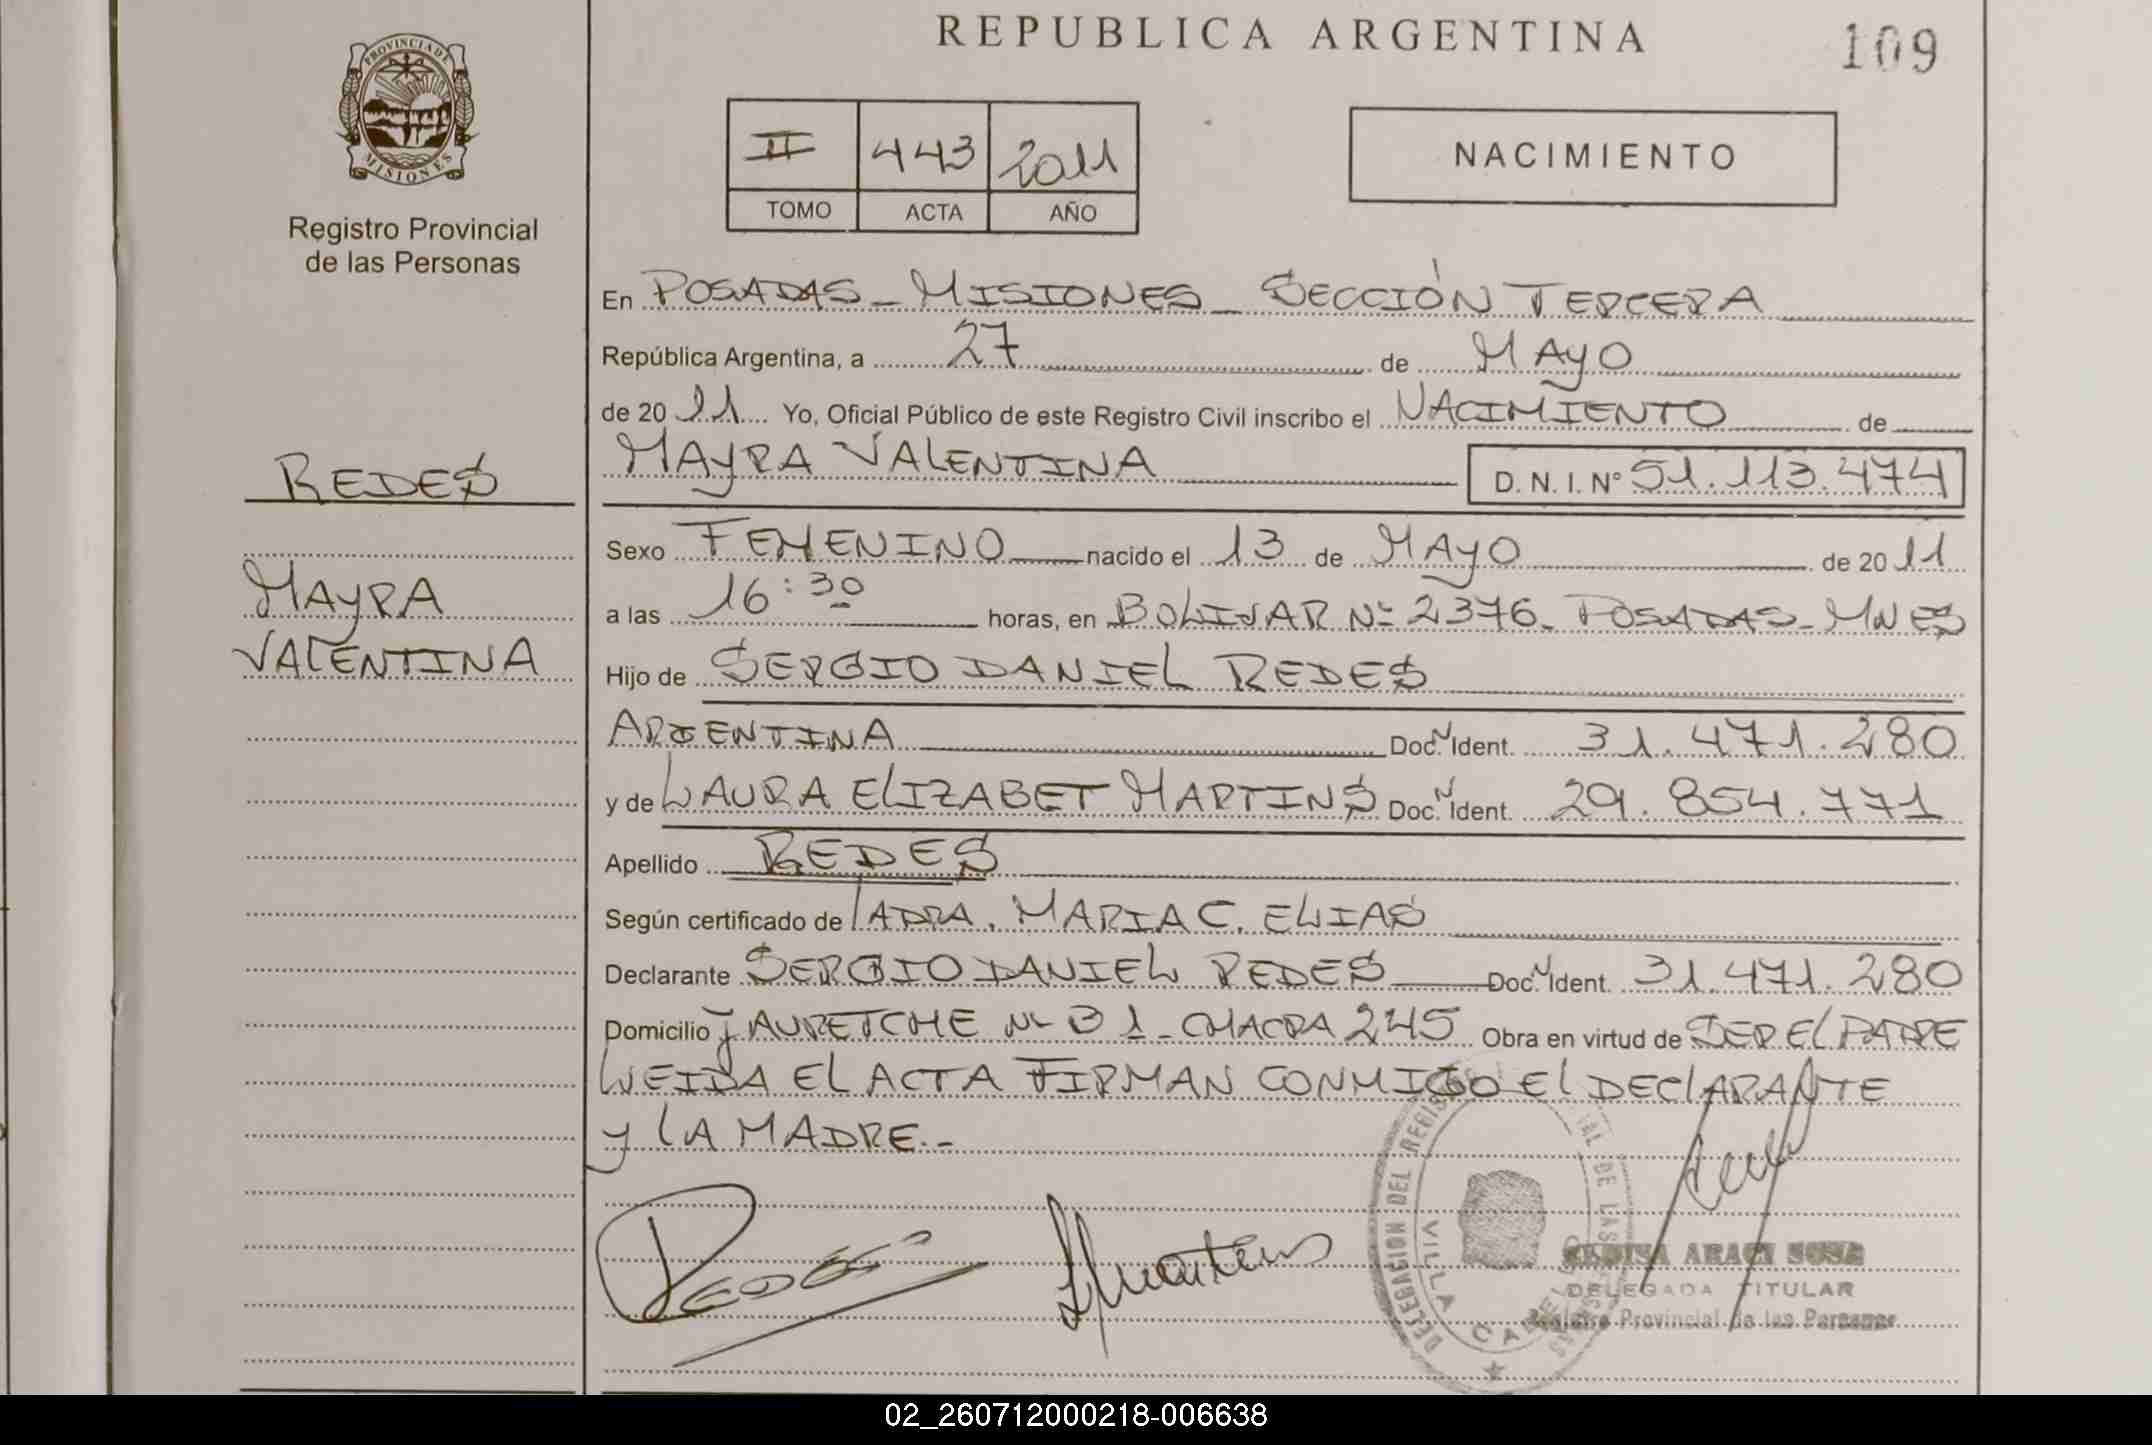 REPUBLICA ARGENTINA
109
PROVINCIA DE
MISIONES
Registro Provincial
de las Personas
II 443 2011
TOMO ACTA AÑO
NACIMIENTO
En POSADAS - MISIONES - SECCIÓN TERCERA
República Argentina, a 27 de MAYO
de 20 11 Yo, Oficial Público de este Registro Civil inscribo el NACIMIENTO de
MAYRA VALENTINA D. N. I. Nº 51.113.474
REDES
MAYRA
VALENTINA
Sexo FEMENINO nacido el 13 de MAYO de 20 11
a las 16:30 horas, en BOLIVAR Nº 2376 - POSADAS - MNES
Hijo de SERGIO DANIEL REDES
ARGENTINA Doc. N Ident. 31.471.280
y de LAURA ELIZABET MARTINS Doc. N Ident. 29.854.771
Apellido REDES
Según certificado de LA DRA. MARIA C. ELIAS
Declarante SERGIO DANIEL REDES Doc. N Ident. 31.471.280
Domicilio JAURETCHE Nº 31 - CHACRA 245 Obra en virtud de SER EL PADRE
LEIDA EL ACTA FIRMAN CONMIGO EL DECLARANTE
Y LA MADRE.-
Redes
DELEGACION DEL REGISTRO
DE LAS
VILLA CABELLO
ARACI SOSA
DELEGADA TITULAR
Registro Provincial de las Personas
02_260712000218-006638